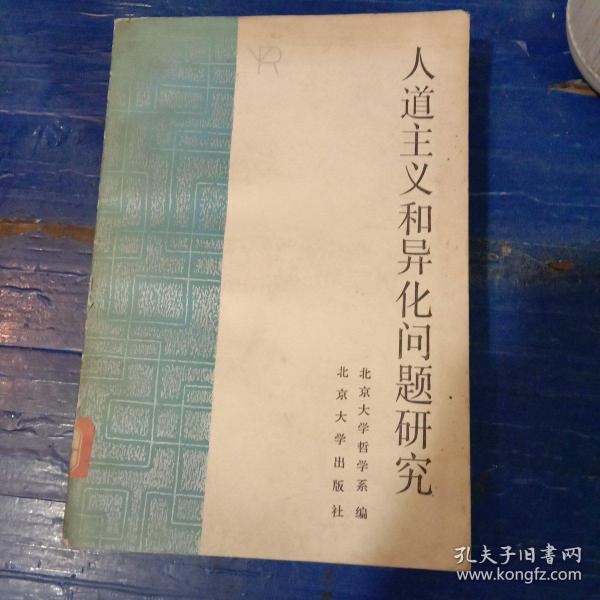 人道主义和异化问题研究
北京大学哲学系编
北京大学出版社
YR
孔夫子旧书网
www.kongfz.com